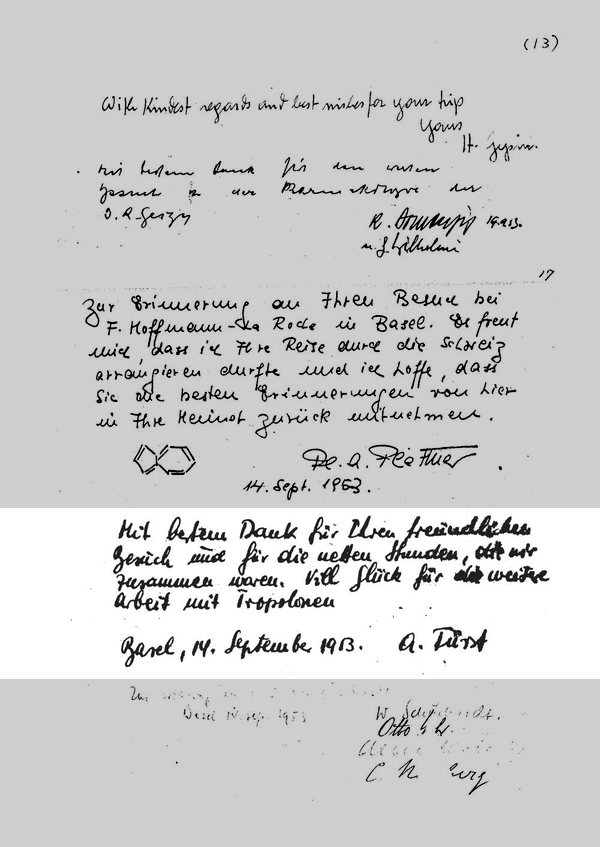 (13)
With kindest regards and best wishes for your trip
Yours
H. Gysin.
Mit bestem Dank für den netten
Besuch in der Pharmakologie der
J. R. Geigy
R. 14.9.53.
u. J. Wilhelmi
17
Zur Erinnerung an Ihren Besuch bei
F. Hoffmann-La Roche in Basel. Es freut
mich, dass ich Ihre Reise durch die Schweiz
arrangieren durfte und ich hoffe, dass
Sie die besten Erinnerungen von hier
in Ihre Heimat zurück mitnehmen.
Pl. A. Plattner
14. Sept. 1953.
Mit bestem Dank für Ihren freundlichen
Besuch und für die netten Stunden, die wir
zusammen waren. Viel Glück für die weitere
Arbeit mit Tropolonen
Basel, 14. September 1953. A. Fürst
Basel 14. Sep. 1953
Otto